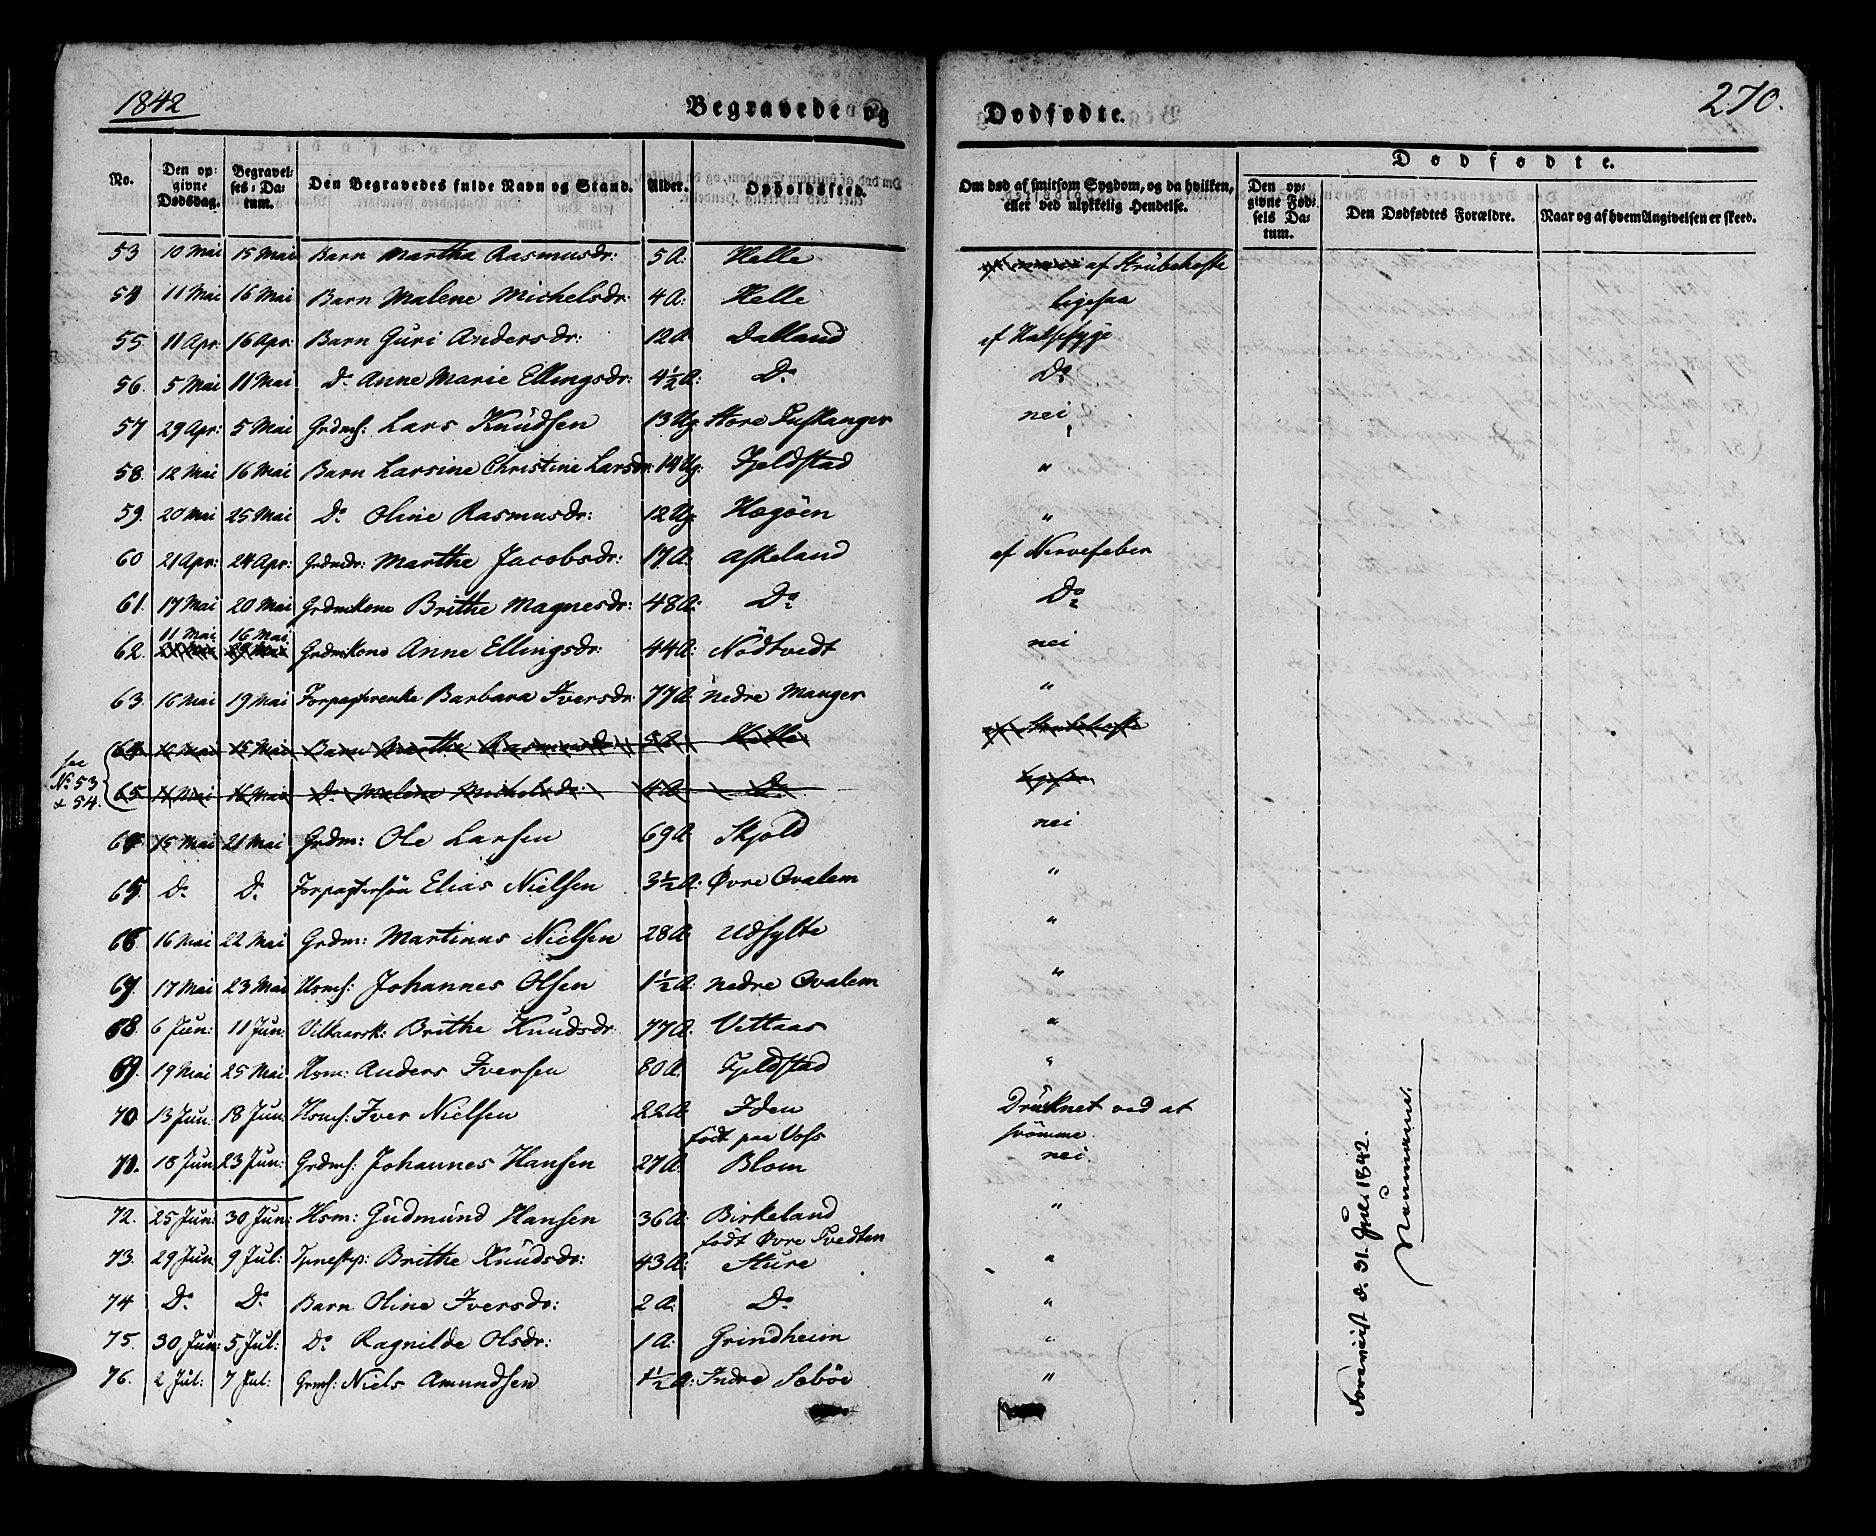 1842
Begravede og Dødfødte.
270.
No. Den opgivne Dødsdag. Begravelses-Datum. Den Begravedes fulde Navn og Stand. Alder. Opholdssted. Om død af smitsom Sygdom, og da hvilken, eller ved ulykkelig Hendelse. Dødfødte. Den opgivne Fødsels Datum. Den Dødfødtes Forældre. Naar og af hvem Angivelsen er skeed.
53 10 Mai 15 Mai Barn Martha Rasmusdr: 5 A: Helle af Strubehoste
54 11 Mai 16 Mai Barn Malene Michelsdr: 4 A: Helle ligesaa
55. 11 Apr: 16 Apr: Barn Guri Andersdr: 12 A Dalland af Halssyge
56. 5 Mai 11 Mai Do Anne Marie Ellingsdr: 4½ A: Do Do
57 29 Apr: 5 Mai Grdms: Lars Knudsen 13 Ug: Store Tuskanger nei
58. 12 Mai 16 Mai Barn Larsine Christine Larsdr: 14 Ug: Fjeldstad "
59. 20 Mai 25 Mai Do Oline Rasmusdr: 12 Ug: Hegöen "
60 21 Apr: 24 Apr: Grdmdr: Marthe Jacobsdr: 17 A: Askeland af Nervefeber
61. 17 Mai 20 Mai Grdmkone Brithe Magnesdr: 48 A: Do Do
11 Mai 16 Mai
62. Grdmkone Anne Ellingsdr: 44 A: Nödtvedt nei
63. 16 Mai 19 Mai Forpagterenke Barbara Iversdr: 77 A: nedre Manger "
64. 10 Mai 15 Mai Barn Marthe Rasmusdr 5 A Helle af Strubehoste
see No 53 & 54
65. 11 Mai 16 Mai Do Malene Michelsdr: 4 A Do ligesaa
64 15 Mai 21 Mai Grdm: Ole Larsen 69 A Skjold nei
65 Do Do Forpagtersön Elias Nielsen 3½ A: Øvre Qvalem "
66 16 Mai 22 Mai Grdm: Martinus Nielsen 28 A: Udsylte "
67. 17 Mai 23 Mai Hsms: Johannes Olsen 1½ A: nedre Qvalem "
68. 6 Jun: 11 Jun: Vilkaarsk: Brithe Knudsdr: 77 A. Vettaas "
69. 19 Mai 25 Mai Hsm: Anders Iversen 80 A. Fjeldstad "
70 13 Jun: 18 Jun: Hsms: Iver Nielsen 22 A. Iden Druknet ved at svömme.
födt paa Voss
71. 18 Jun 23 Jun: Grdms: Johannes Hansen 27 A. Blom nei.
72. 25 Jun: 30 Jun: Hsm: Gudmund Hansen 36 A: Birkeland "
födt Øvre Tvedten
73. 29 Jun: 9 Jul: Tjenestep: Brithe Knudsdr: 43 A: Sture "
74 Do Do Barn Oline Iversdr: 2 A: Do "
75. 30 Jun: 5 Jul: Do Ragnilde Olsdr: 1 A: Grindheim "
76. 2 Jul: 7 Jul: Grms: Niels Amundsen 1½ A: Indre Sæböe "
Foreviist d. 31. Juli 1842.
Neumann.